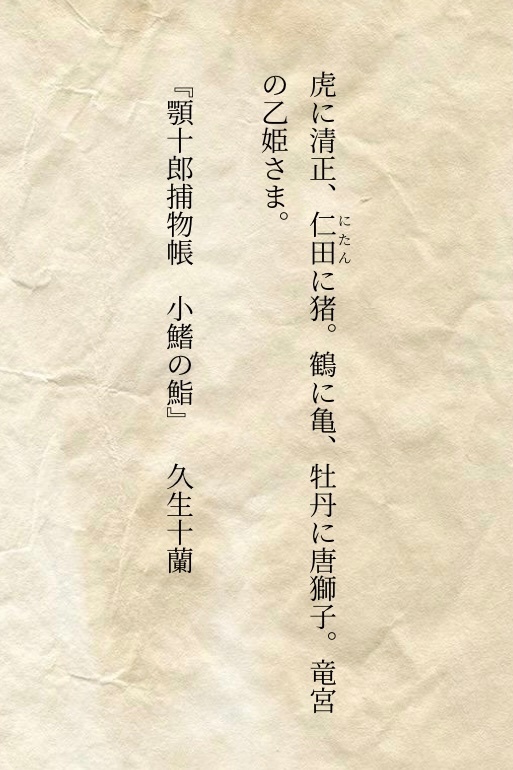 虎に清正、仁田にたんに猪。鶴に亀、牡丹に唐獅子。竜宮
の乙姫さま。
『顎十郎捕物帳　小鰭の鮨』　久生十蘭